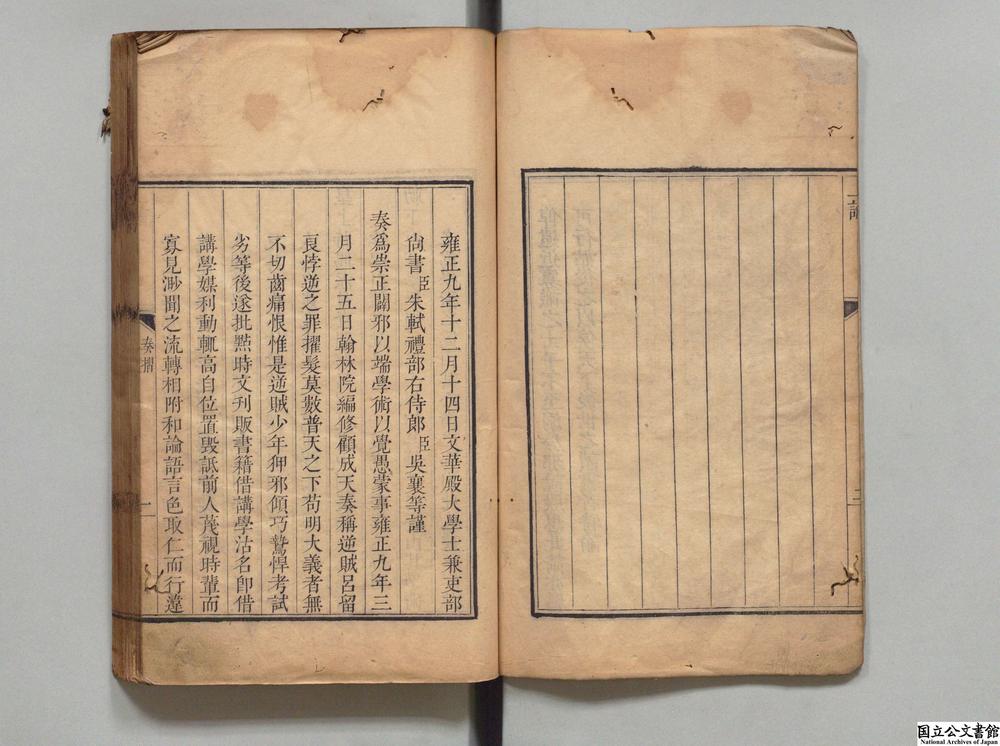 上諭
三
雍正九年十二月十四日文華殿大學士兼吏部
尚書臣朱軾禮部右侍郎臣吳襄等謹
奏為崇正闢邪以端學術以覺愚蒙事雍正九年三
月二十五日翰林院編修顧成天奏稱逆賊呂留
良悖逆之罪擢髮莫數普天之下苟明大義者無
不切齒痛恨惟是逆賊少年狎邪傾巧鷙悍考試
劣等後遂批㸃時文刋販書籍借講學沽名即借
講學媒利動輒高自位置毀詆前人蔑視時輩而
寡見渺聞之流轉相附和論語言色取仁而行違
奏摺
一
国立公文書館
National Archives of Japan